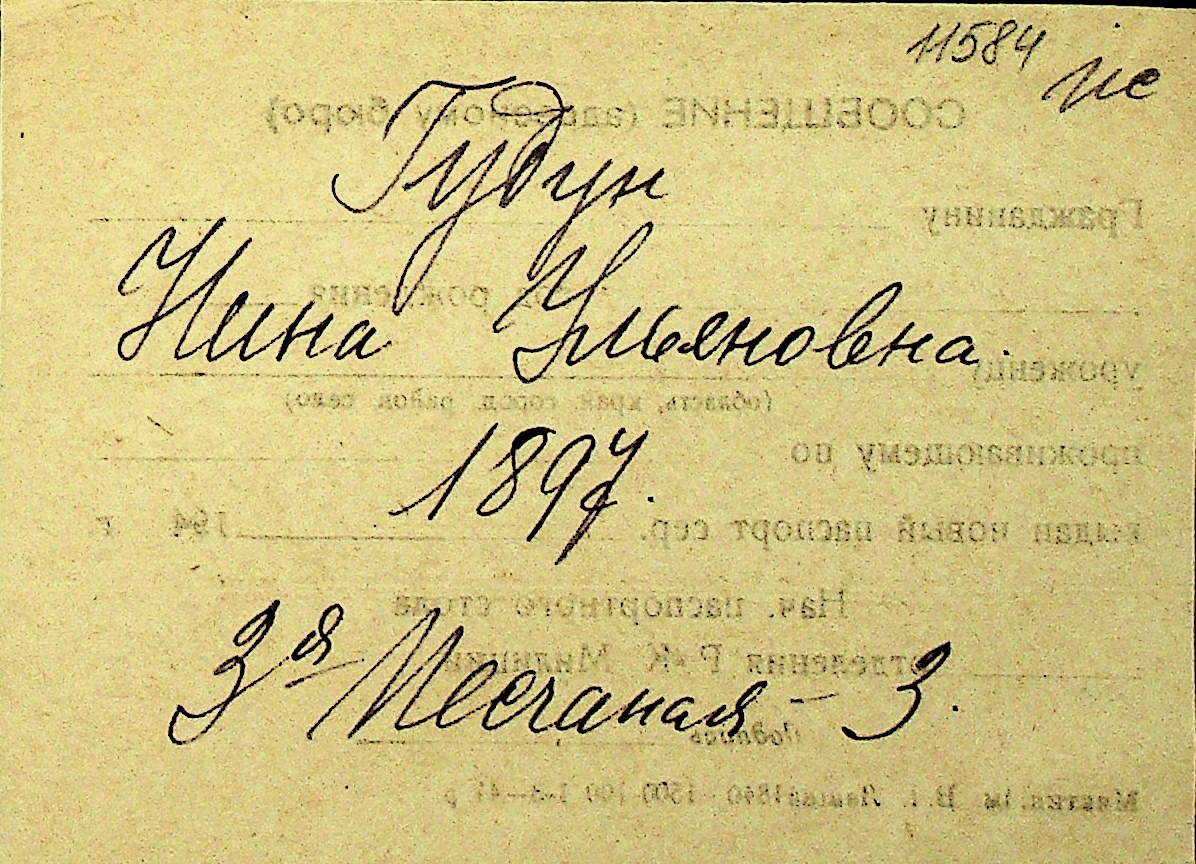 11584 не
Гудун
Нина Ульяновна.
1897.
3я Песчаная - 3.
СООБЩЕНИЕ (адресному бюро)
Гражданину
год рождения
уроженцу
(область, край, город, район, село)
проживающему по
выдан новый паспорт сер. 194 г.
Нач. паспортного стола
отделения Р-К Милиции
Подпись